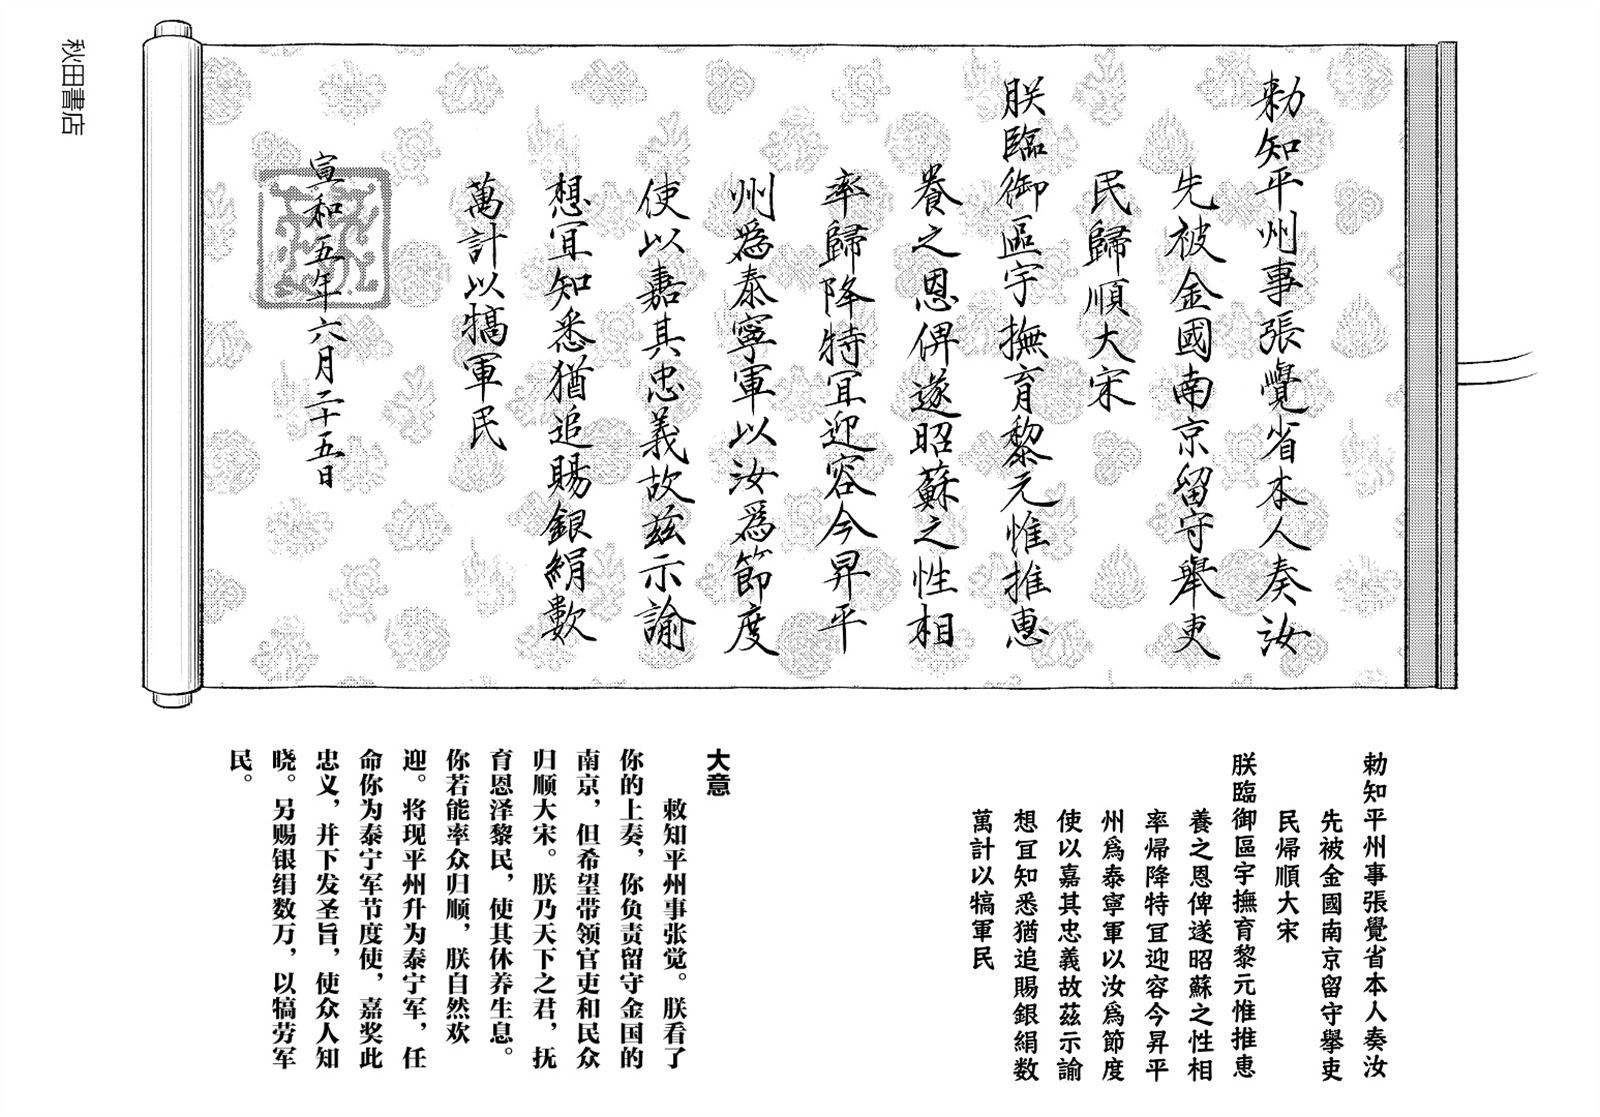 勅知平州事張覺省本人奏汝
先被金國南京留守舉吏
民歸順大宋
朕臨御區宇撫育黎元惟推惠
養之恩俾遂昭蘇之性相
率歸降特冝迎容今昇平
州爲泰寧軍以汝爲節度
使以嘉其忠義故茲示諭
想冝知悉猶追賜銀絹數
萬計以犒軍民
宣和五年六月二十五日
秋田書店
勅知平州事張覺省本人奏汝
先被金國南京留守擧吏
民帰順大宋
朕臨御區宇撫育黎元惟推恵
養之恩俾遂昭蘇之性相
率帰降特冝迎容今昇平
州爲泰寧軍以汝爲節度
使以嘉其忠義故茲示諭
想冝知悉猶追賜銀絹数
萬計以犒軍民
大意
敕知平州事张觉。朕看了
你的上奏，你负责留守金国的
南京，但希望带领官吏和民众
归顺大宋。朕乃天下之君，抚
育恩泽黎民，使其休养生息。
你若能率众归顺，朕自然欢
迎。将现平州升为泰宁军，任
命你为泰宁军节度使，嘉奖此
忠义，并下发圣旨，使众人知
晓。另赐银绢数万，以犒劳军
民。